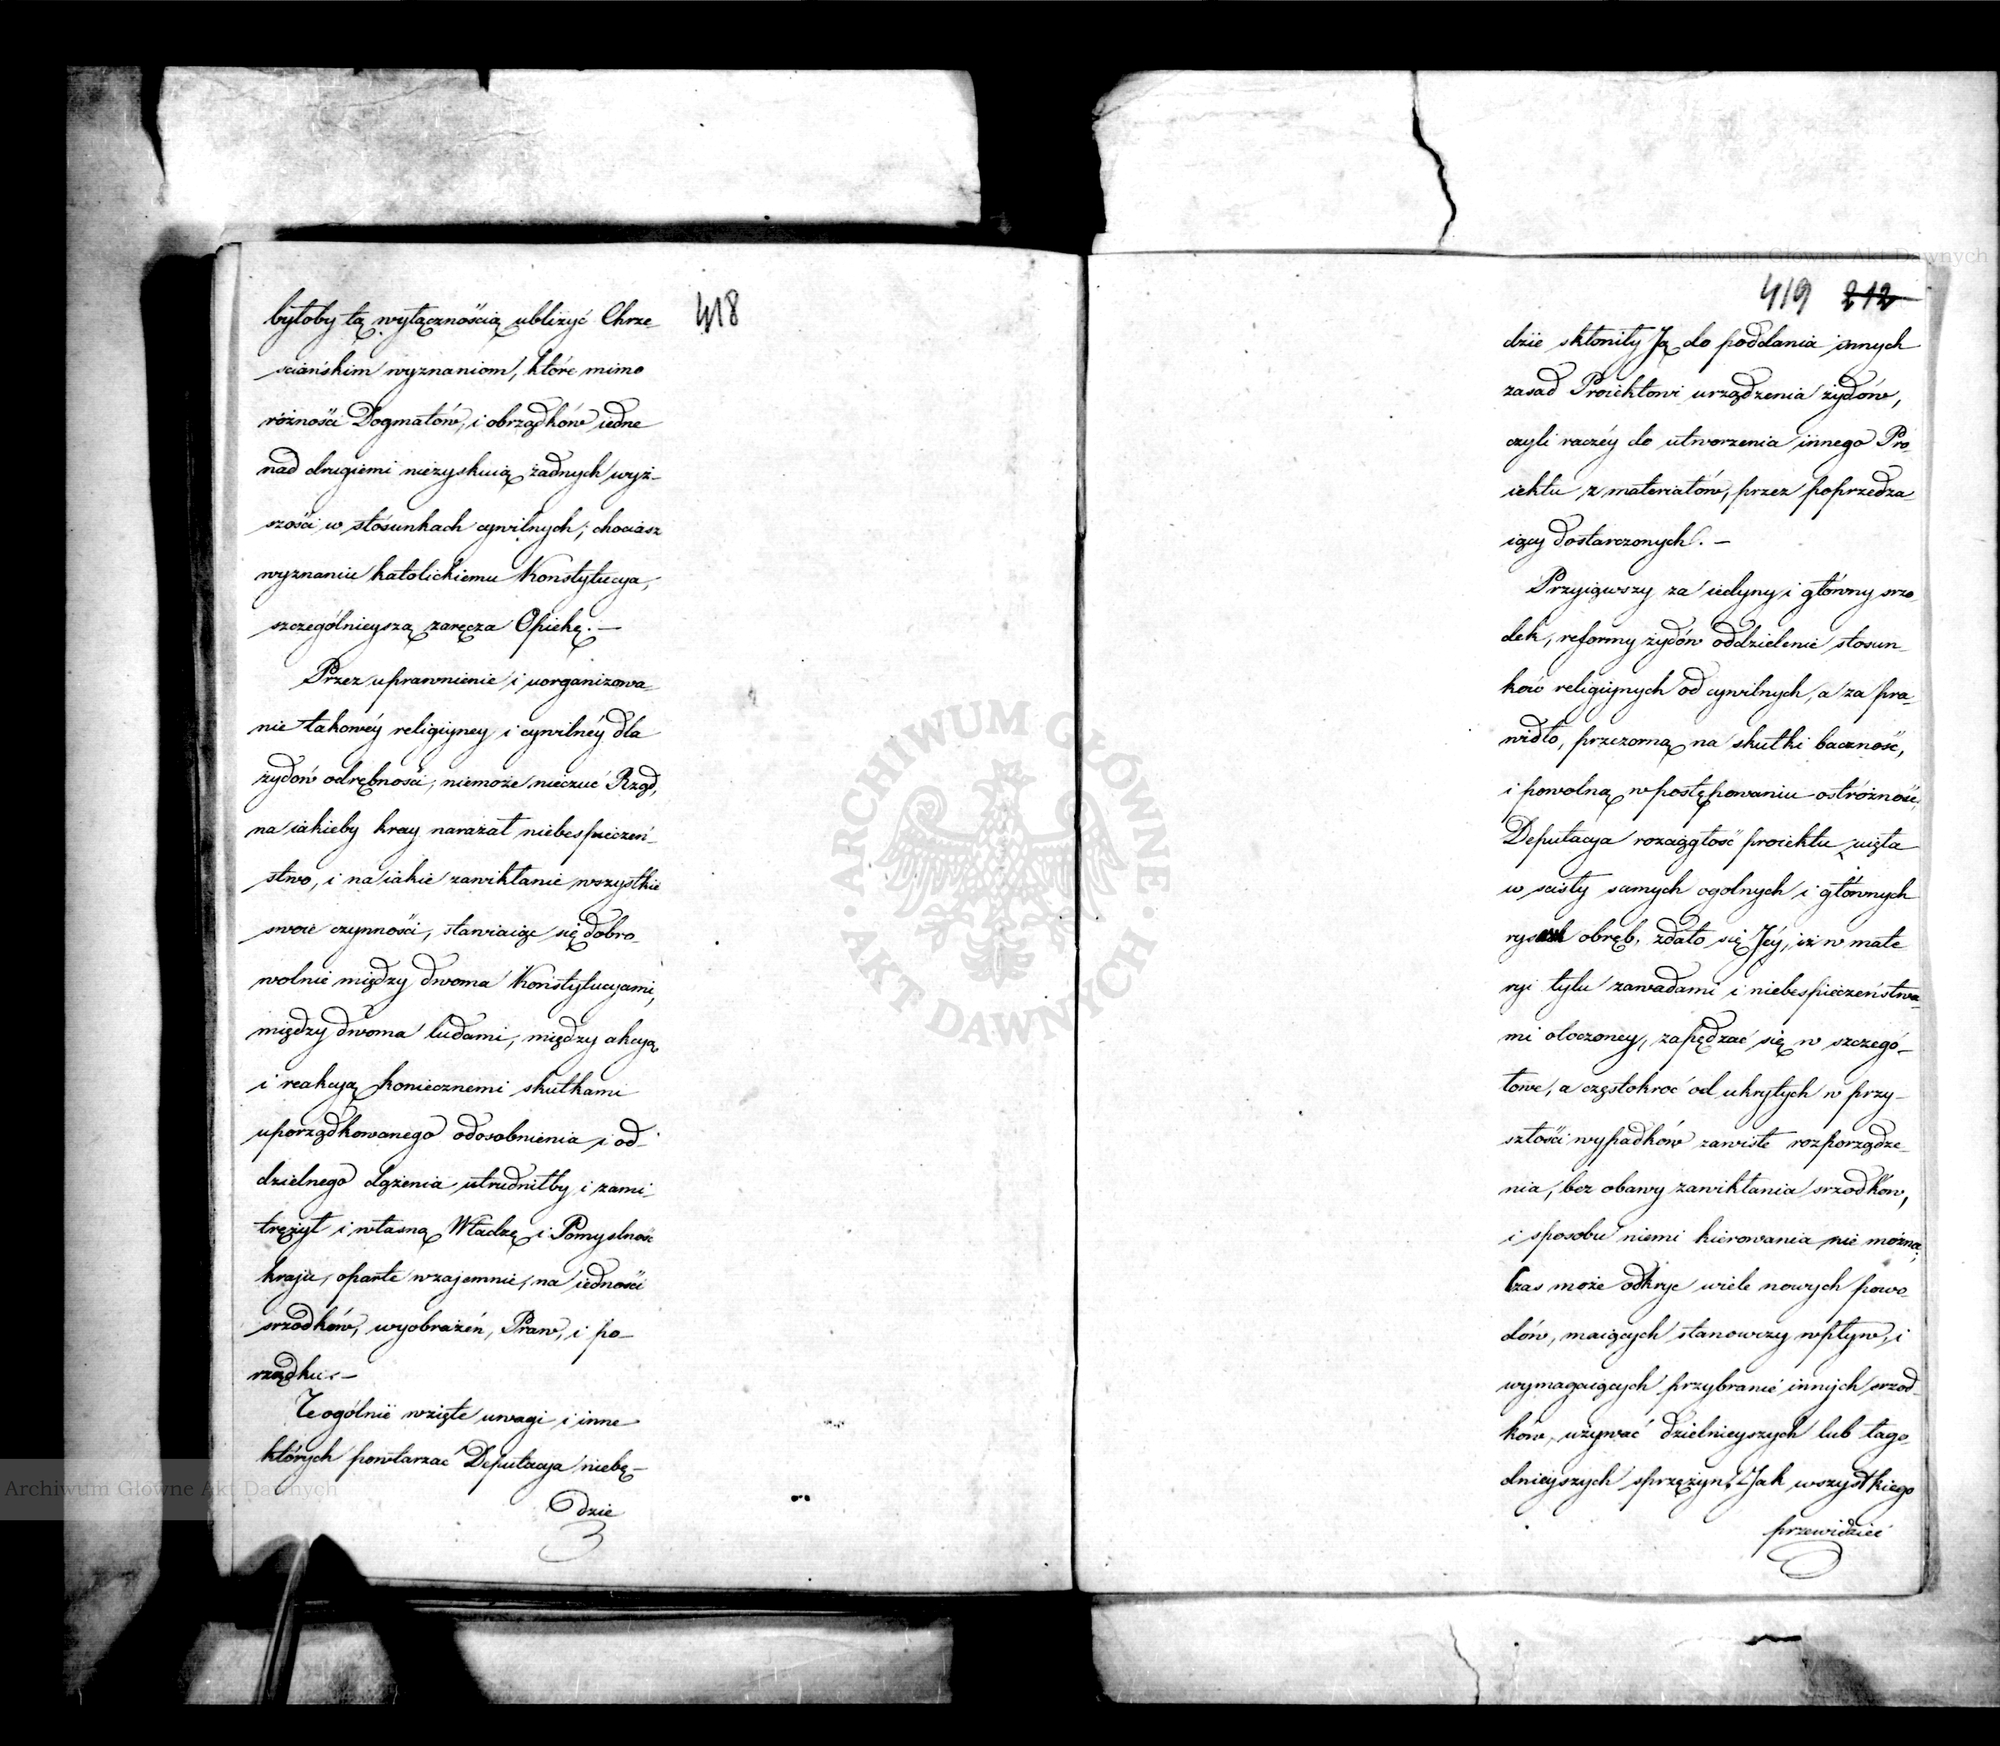 418
byłoby tą wyłącznością ubliżyć Chrze
sciańskim wyznaniom, które mimo
różności Dogmatów, i obrządków iedne
nad drugiemi niezyskuią żadnych wyż-
szości w stósunkach cywilnych; chociasz
wyznaniu katolickiemu Konstytucya,
szczególnieyszą zaręcza Opiekę. —
Przez uprawnienie i uorganizowa-
nie takowéy religiyney i cywilnéy dla
żydów odrębności, niemoże nieczuć Rząd,
na iakieby kray narażał niebespieczeń-
stwo, i na iakie zawikłanie wszystkie
swoie czynności, stawiaiąc się dobro-
wolnie między dwoma Konstytucyami,
między dwoma ludami, między akcyą
i reakcyą koniecznemi skutkami
uporządkowanego odosobnienia i od-
dzielnego dążenia utrudniłby i zami-
tręzył i własną Władzę i Pomyslność
kraju, oparte wzajemnie, na iedności
srzodków, wyobrażeń, Praw, i po-
rządku. —
Te ogólnie wzięte uwagi i inne
których powtarzać Deputacya niebę-
dzie
419 212
dzie skłoniły Ją do poddania innych
zasad Proiektowi urządzenia żydów,
czyli raczéy do utworzenia innego Pro-
iektu z materiałów, przez poprzedza-
iący dostarczonych. —
Przyiąwszy za iedyny i główny srzo-
dek, reformy żydów oddzielenie stosun-
ków religiynych od cywilnych, a za pra-
widło, przezorną na skutki baczność,
i powolną w postępowaniu ostróżność,
Deputacya rozciągłość proiektu ujęła
w scisły samych ogolnych i głównych
obręb, zdało się Jéy, iż w mate
ryi tylu zawadami i niebespieczeństwa-
mi otoczoney, zapędzać się w szczegó-
łowe, a częstokroć od ukrytych w przy-
szłości wypadków zawisłe rozporządze-
nia, bez obawy zawikłania srzodków,
i sposobu niemi kierowania nie można;
Czas może odkryc wiele nowych powo-
dów, maiących stanowczy wpływ, i
wymagaiących przybranie innych srzod-
ków, używać dzielnieyszych lub łago-
dnieyszych sprężyn. Jak wszystkiego
przewidzieć
ARCHIWUM GŁÓWNE
AKT DAWNYCH
Archiwum Głowne Akt Dawnych
Archiwum Głowne Akt Dawnych